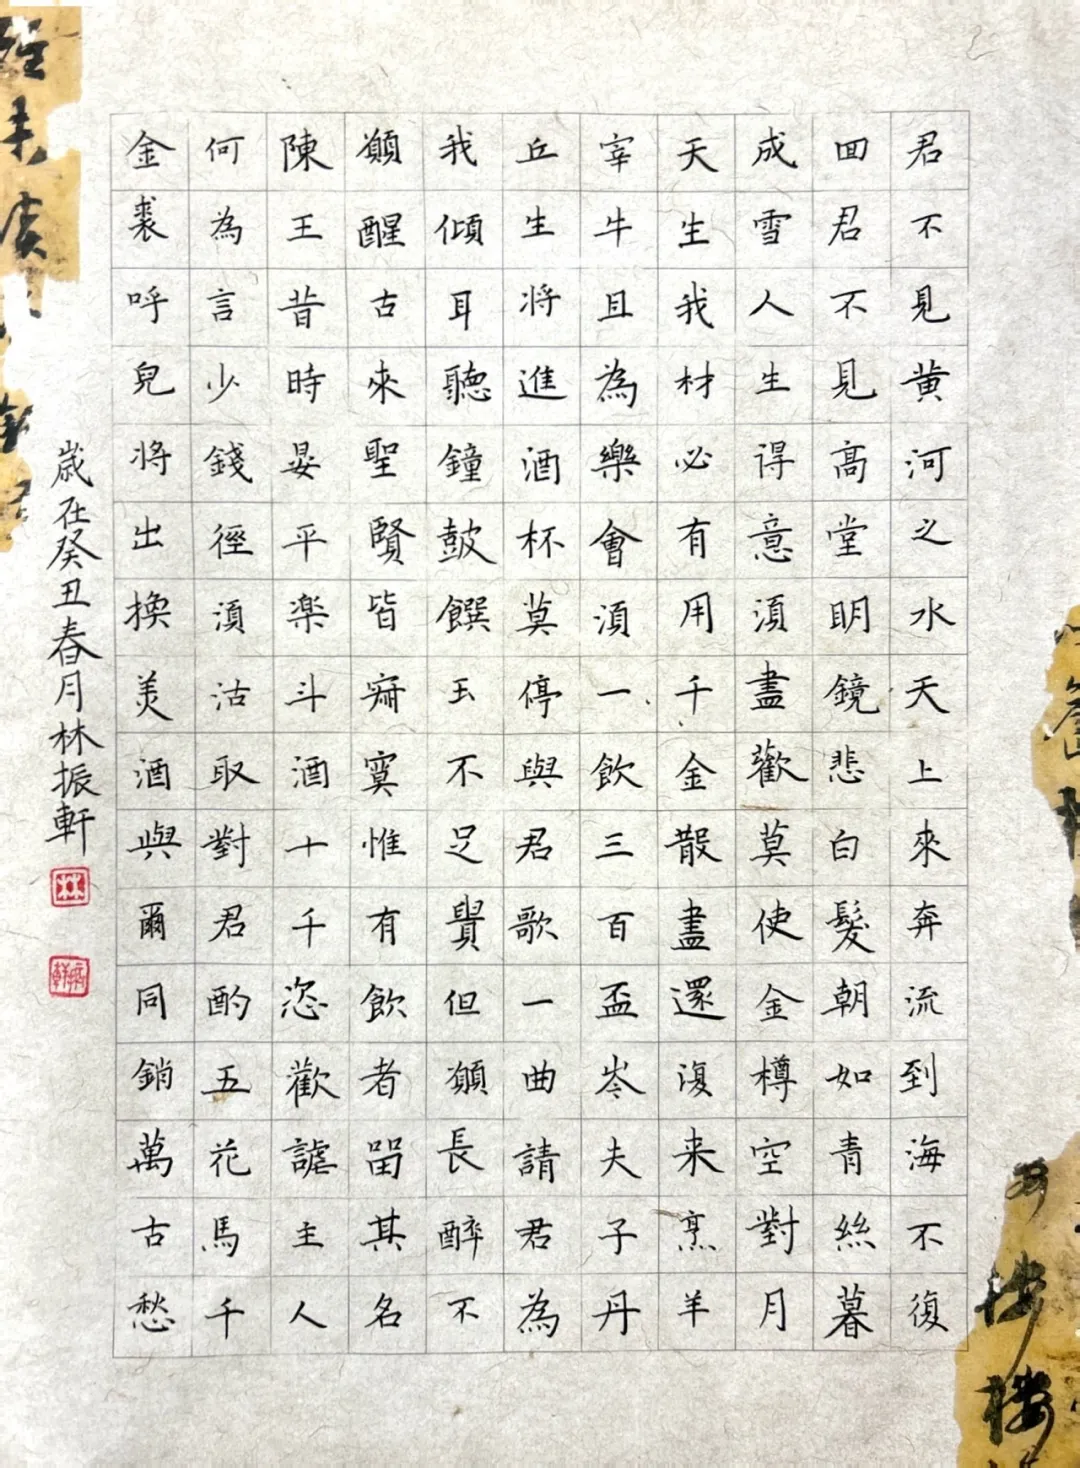 君不見黄河之水天上來奔流到海不復
囬君不見高堂明鏡悲白髮朝如青絲暮
成雪人生得意須盡歡莫使金樽空對月
天生我材必有用千金散盡還復来烹羊
宰牛且為樂會須一飲三百盃岑夫子丹
丘生将進酒杯莫停與君歌一曲請君為
我傾耳聽鐘鼓饌玉不足貴但願長醉不
願醒古來聖賢皆寂寞惟有飲者留其名
陳王昔時宴平楽斗酒十千恣歡謔主人
何為言少錢徑須沽取對君酌五花馬千
金裘呼兒将出換美酒與爾同銷萬古愁
歲在癸丑春月林振軒
林
振軒